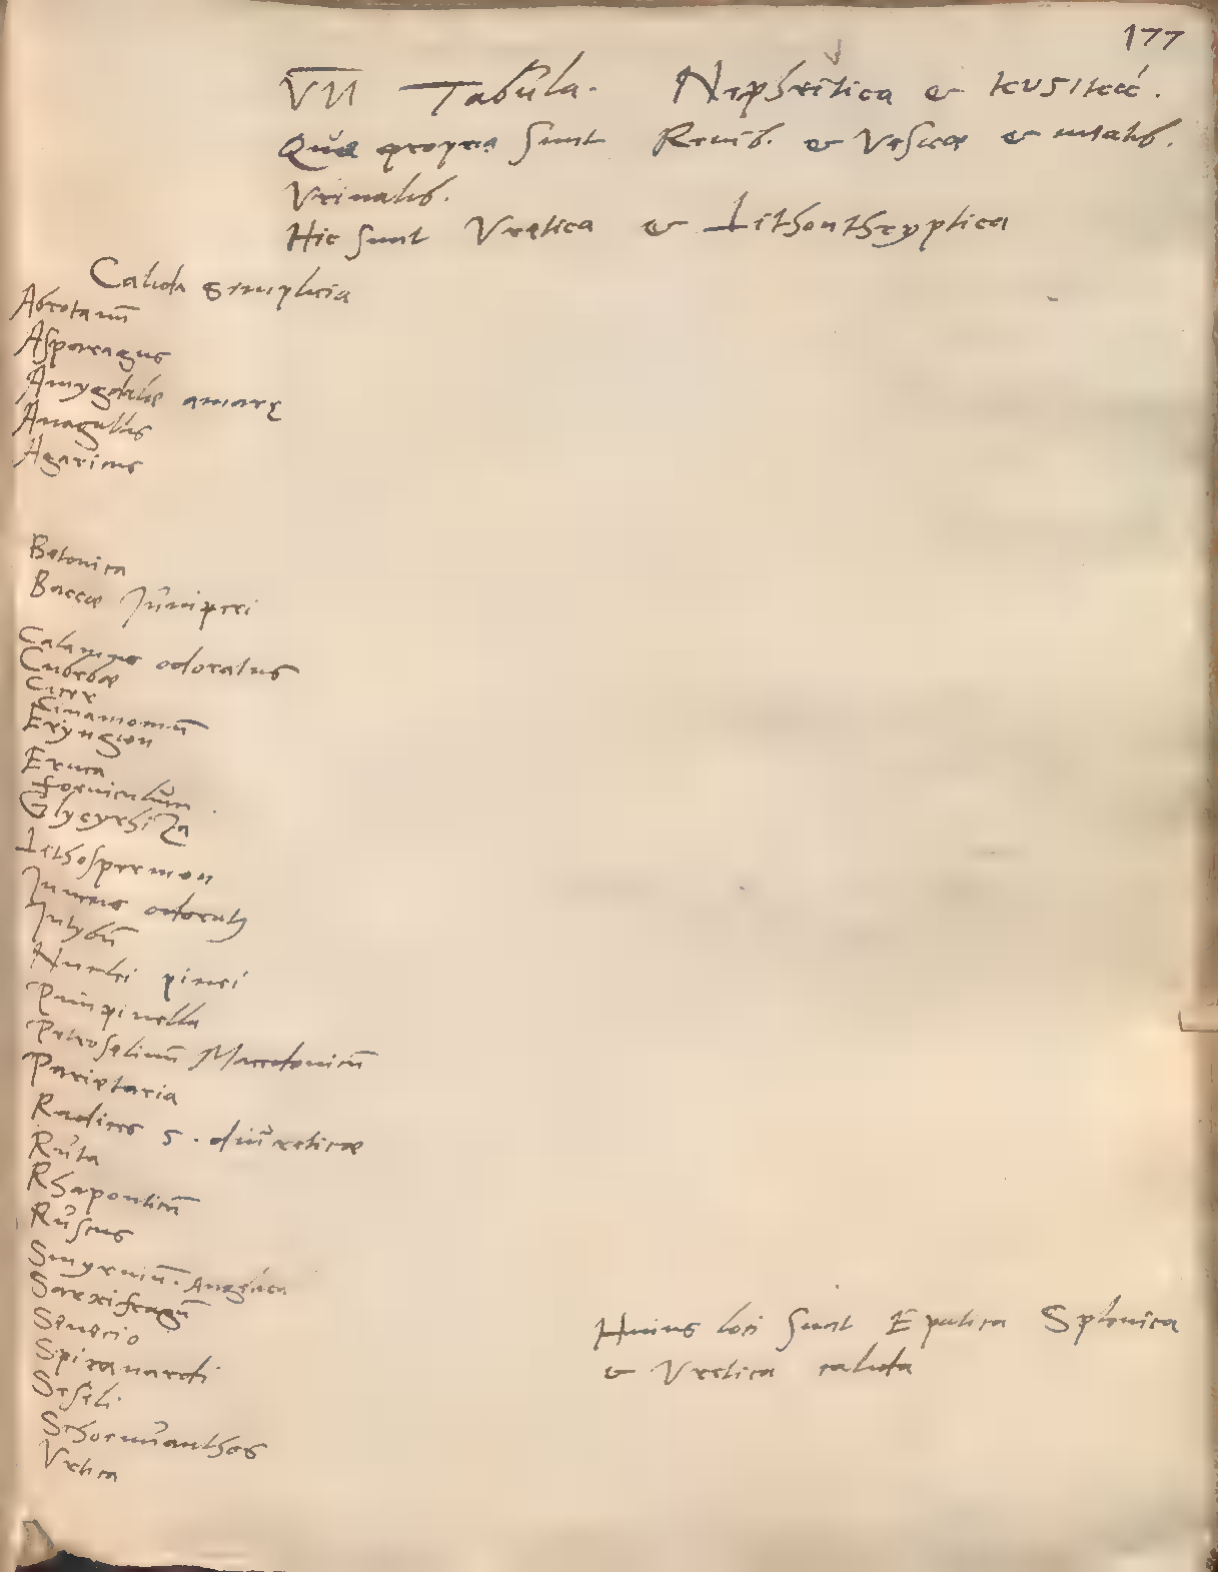 177
VII Tabula. Nephritica & κυστικά.
Quæ propria sunt Renib. & Vesicæ & meatib.
Urinalib.
Hic sunt Uretica & Lithonthryptica
Calida simplicia
Abrotanū
Asparagus
Amygdalæ amarę
Anagallis
Agaricus
Betonica
Baccæ Juniperi
Calamus odoratus
Cubebæ
Cicer
Cinamomū
Eryngion
Eruca
Foeniculum
Glycyrhiza
Lithospermon
Juncus odoratus
Intybū
Nuclei pinei
Pimpinella
Petroselinū Macedonicū
Parietaria
Radices 5. diureticæ
Ruta
Rhaponticū
Ruscus
Smyrniū. Angelica
Saxifragū
Senecio
Spicanardi
Seseli
Schoenuanthos
Urtica
Huius loci sunt Epatica Splenica
& Uretica calida